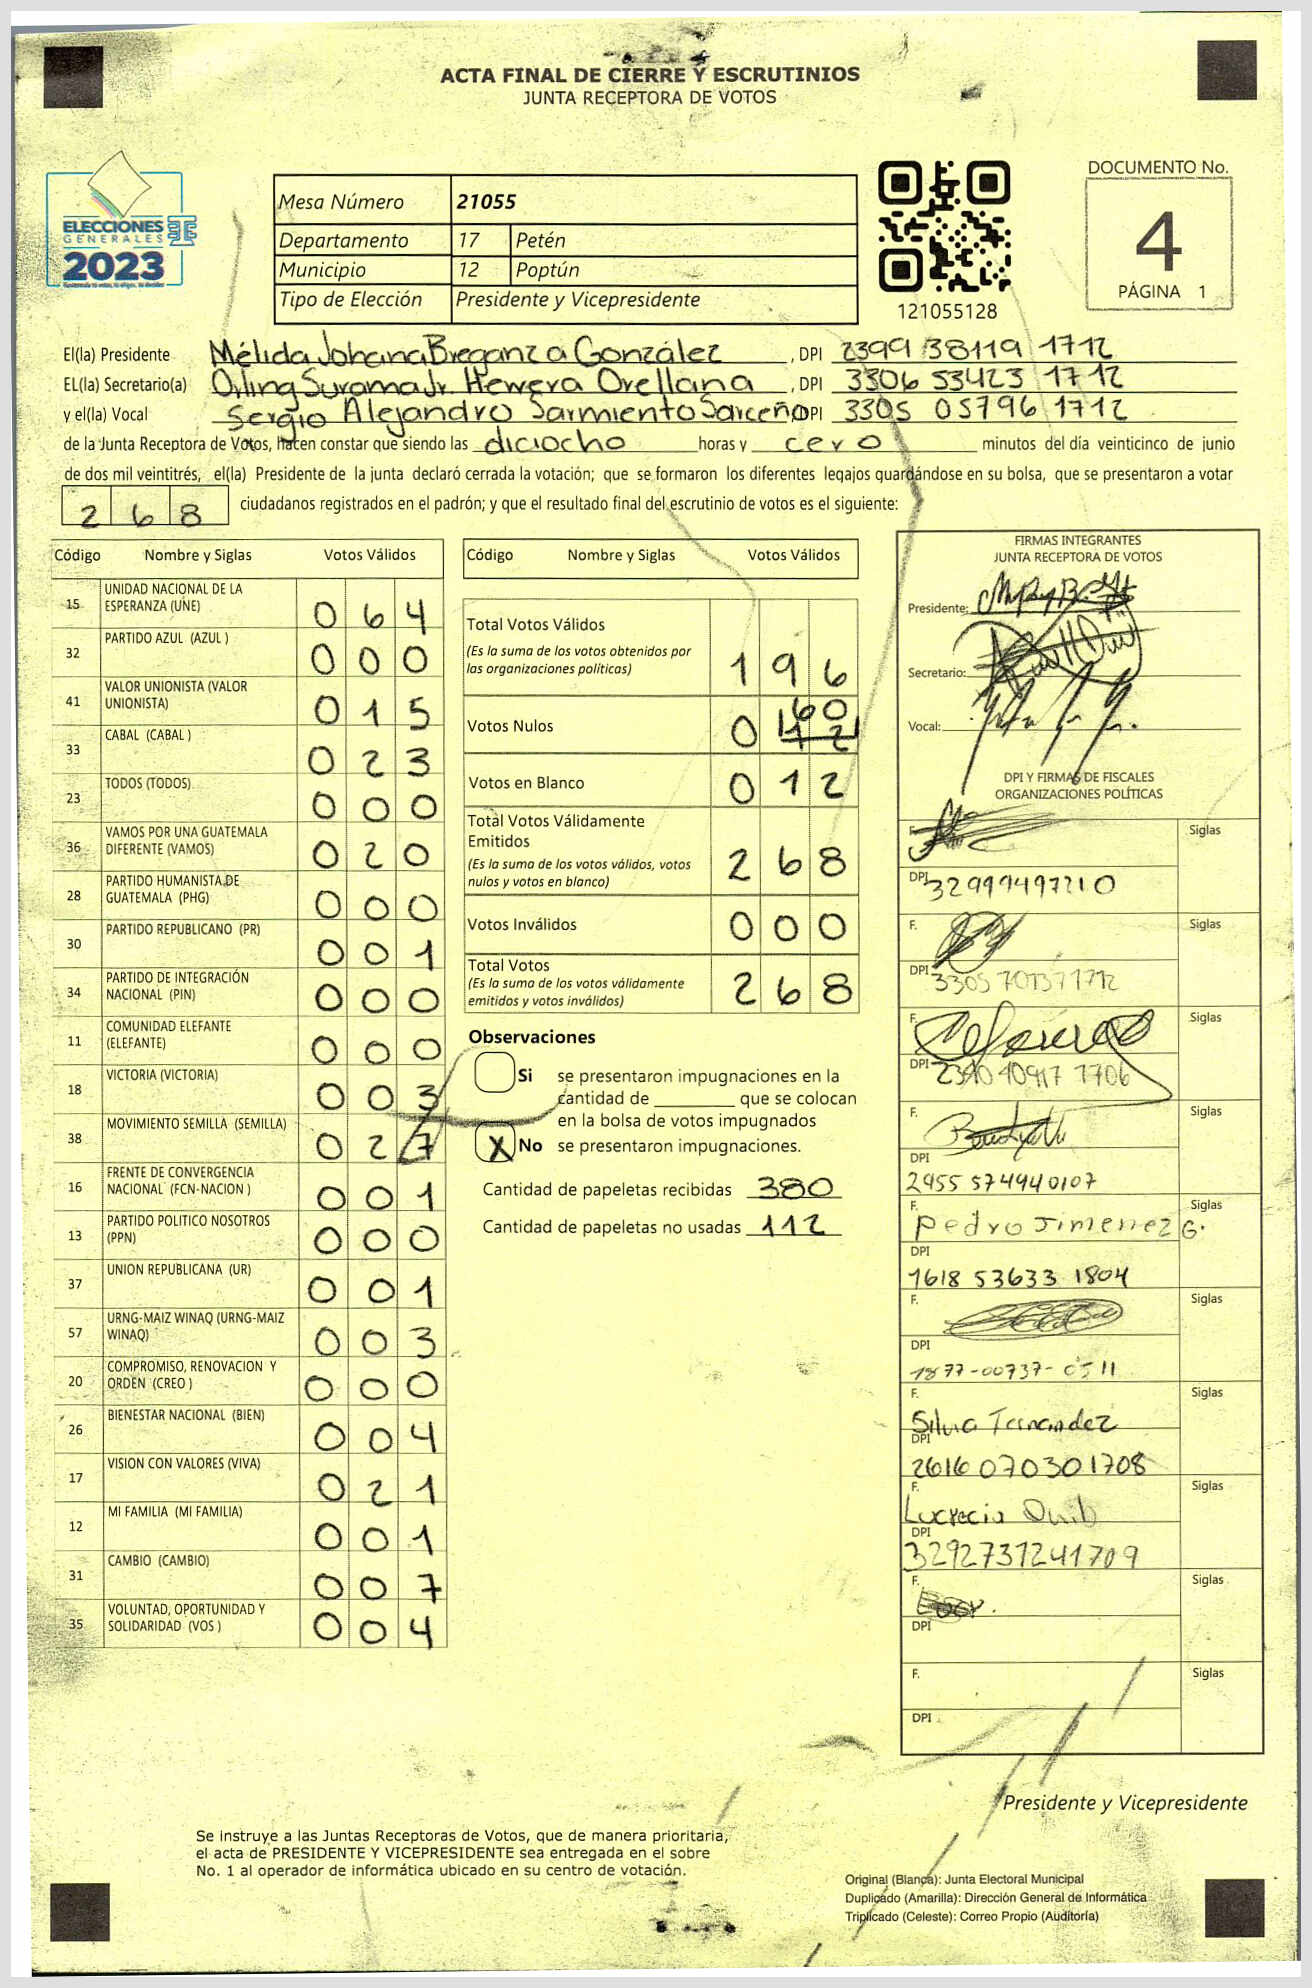 ACTA FINAL DE CIERRE Y ESCRUTINIOS
JUNTA RECEPTORA DE VOTOS
ELECCIONES
GENERALES
2023
Mesa Número 21055
Departamento 17 Petén
Municipio 12 Poptún
Tipo de Elección Presidente y Vicepresidente
121055128
DOCUMENTO No.
4
PÁGINA 1
El(la) Presidente Mélida Johana Breganza González, DPI 2399 38119 1712
EL(la) Secretario(a) Orling Surama Jr. Herrera Orellana, DPI 3306 53423 1712
y el(la) Vocal Sergio Alejandro Sarmiento Sarceño, DPI 3305 05796 1712
de la Junta Receptora de Votos, hacen constar que siendo las diciocho horas y cero minutos del día veinticinco de junio
de dos mil veintitrés, el(la) Presidente de la junta declaró cerrada la votación; que se formaron los diferentes legajos guardándose en su bolsa, que se presentaron a votar
268 ciudadanos registrados en el padrón; y que el resultado final del escrutinio de votos es el siguiente:
Código Nombre y Siglas Votos Válidos
15 UNIDAD NACIONAL DE LA ESPERANZA (UNE) 0 6 4
32 PARTIDO AZUL (AZUL ) 0 0 0
41 VALOR UNIONISTA (VALOR UNIONISTA) 0 1 5
33 CABAL (CABAL ) 0 2 3
23 TODOS (TODOS) 0 0 0
36 VAMOS POR UNA GUATEMALA DIFERENTE (VAMOS) 0 2 0
28 PARTIDO HUMANISTA DE GUATEMALA (PHG) 0 0 0
30 PARTIDO REPUBLICANO (PR) 0 0 1
34 PARTIDO DE INTEGRACIÓN NACIONAL (PIN) 0 0 0
11 COMUNIDAD ELEFANTE (ELEFANTE) 0 0 0
18 VICTORIA (VICTORIA) 0 0 3
38 MOVIMIENTO SEMILLA (SEMILLA) 0 2 7
16 FRENTE DE CONVERGENCIA NACIONAL (FCN-NACION ) 0 0 1
13 PARTIDO POLITICO NOSOTROS (PPN) 0 0 0
37 UNION REPUBLICANA (UR) 0 0 1
57 URNG-MAIZ WINAQ (URNG-MAIZ WINAQ) 0 0 3
20 COMPROMISO, RENOVACION Y ORDEN (CREO ) 0 0 0
26 BIENESTAR NACIONAL (BIEN) 0 0 4
17 VISION CON VALORES (VIVA) 0 2 1
12 MI FAMILIA (MI FAMILIA) 0 0 1
31 CAMBIO (CAMBIO) 0 0 7
35 VOLUNTAD, OPORTUNIDAD Y SOLIDARIDAD (VOS ) 0 0 4
Código Nombre y Siglas Votos Válidos
Total Votos Válidos
(Es la suma de los votos obtenidos por
las organizaciones políticas) 1 9 6
Votos Nulos 0 60
12
Votos en Blanco 0 1 2
Total Votos Válidamente
Emitidos
(Es la suma de los votos válidos, votos
nulos y votos en blanco) 2 6 8
Votos Inválidos 0 0 0
Total Votos
(Es la suma de los votos válidamente
emitidos y votos inválidos) 2 6 8
Observaciones
Si se presentaron impugnaciones en la
cantidad de ________ que se colocan
en la bolsa de votos impugnados
X No se presentaron impugnaciones.
Cantidad de papeletas recibidas 380
Cantidad de papeletas no usadas 112
FIRMAS INTEGRANTES
JUNTA RECEPTORA DE VOTOS
Presidente:
Secretario:
Vocal:
DPI Y FIRMAS DE FISCALES
ORGANIZACIONES POLÍTICAS
F. Siglas
DPI 32999497210
F. Siglas
DPI 3305 701371712
F. Siglas
DPI 2390 40917 1706
F. Siglas
DPI
2955 574940107
F. Pedro Jimenez G. Siglas
DPI
1618 53633 1804
F. Siglas
DPI
1877-00737-0511
F. Siglas
Silvia Fernandez
DPI
2616070301708
F. Siglas
Lucrecia
DPI
3292731241709
F. Siglas
DPI
F. Siglas
DPI
Presidente y Vicepresidente
Se instruye a las Juntas Receptoras de Votos, que de manera prioritaria,
el acta de PRESIDENTE Y VICEPRESIDENTE sea entregada en el sobre
No. 1 al operador de informática ubicado en su centro de votación.
Original (Blanca): Junta Electoral Municipal
Duplicado (Amarilla): Dirección General de Informática
Triplicado (Celeste): Correo Propio (Auditoría)